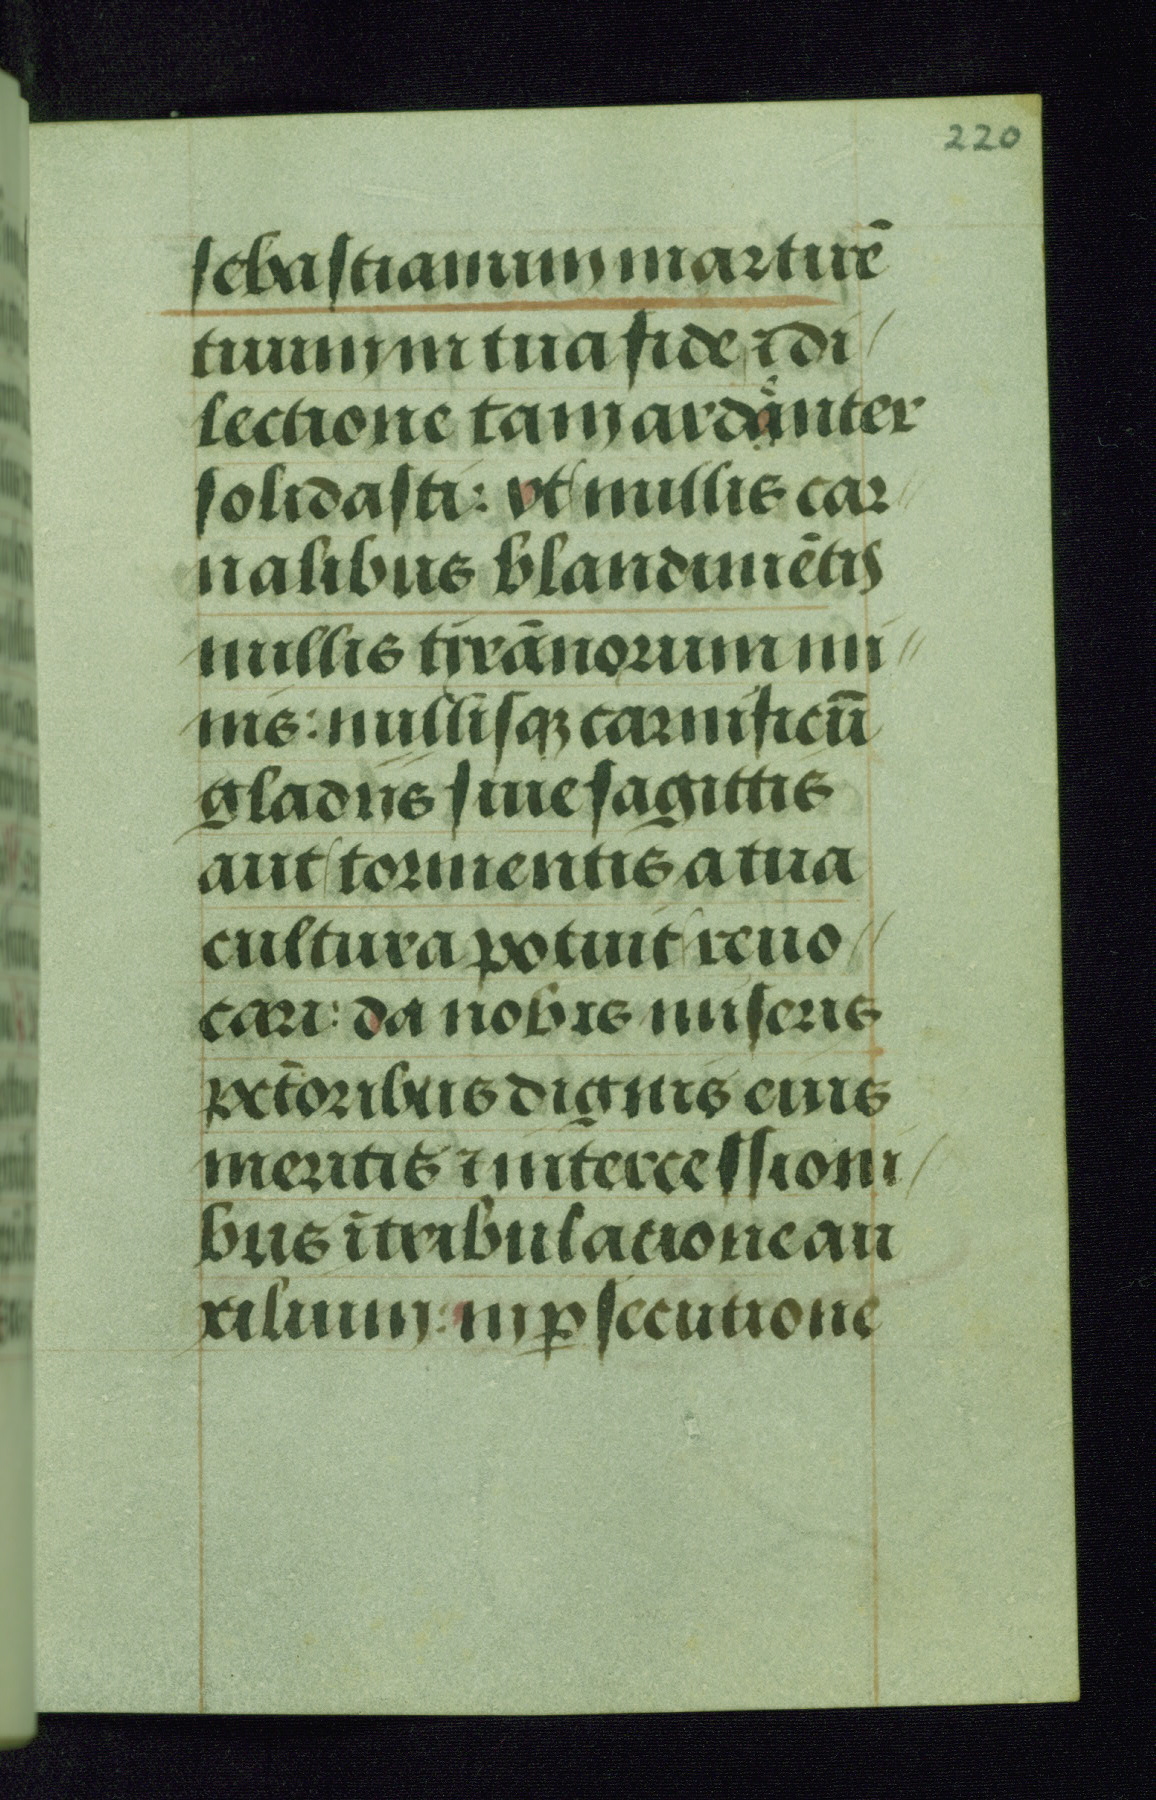 220
sebastianum martirē
tuum in tua fide ⁊ di/
lectione tam ardēnter
solidasti: vt nullis car/
nalibus blandimētis
nullis tirānorum mi//
nis: nullisqꝫ carnificū
gladiis siue sagittis
aut tormentis a tua
cultura potuit reuo//
cari: da nobis miseris
pctōribus dignis eius
meritis ⁊ intercessioni/
bus ī tribulatione au
xilium: in ꝑsecutione